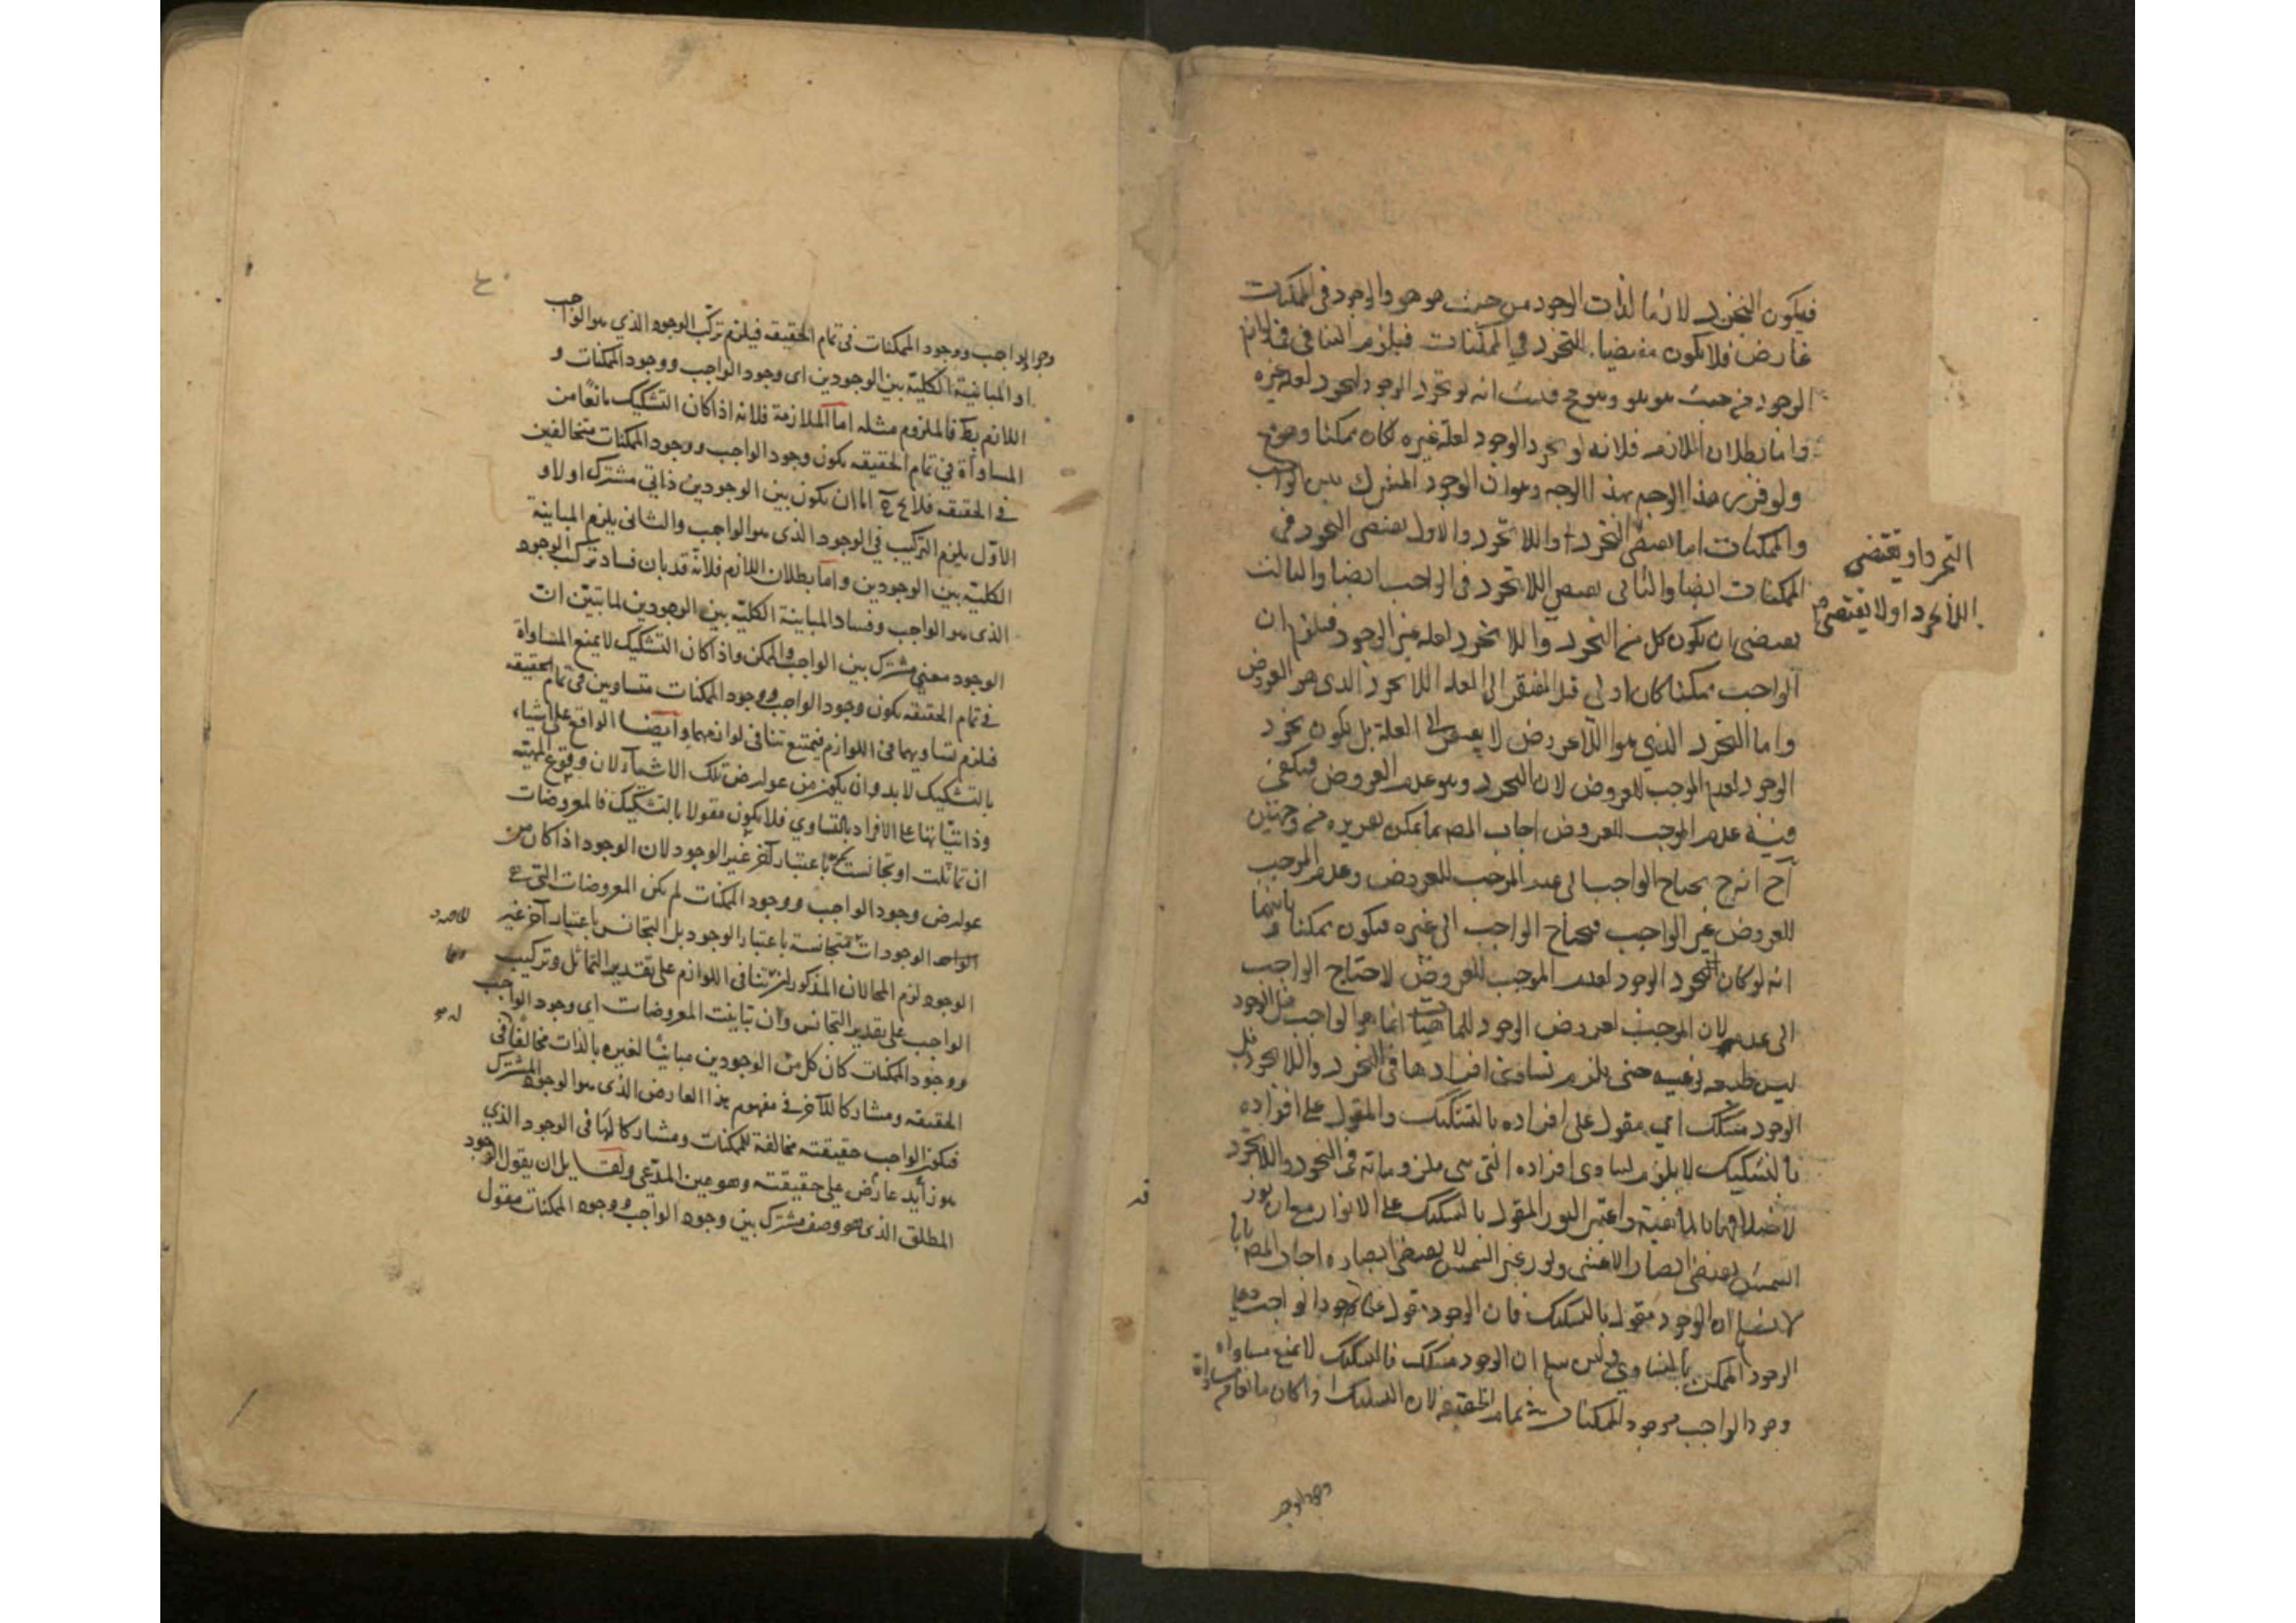 فيكون التجرد لازما لذات الوجود من حيث هو هو والوجود في الممكنات
عارض فلا يكون مقتضيا للتجرد في الممكنات فيلزم التنافي في لوازم
الوجود من حيث هو هو وهو مح فثبت انه لو تجرد الوجود لتجرد لعلة غيره
واما بطلان اللازم فلانه لو تجرد الوجود لعلة غيره لكان ممكنا وهو مح
ولو قرر هذا الوجه بهذا الوجه وهو ان الوجود المشترك بين الواجب
والممكنات اما يقتضي التجرد او اللا تجرد والاول يقتضي التجرد في
التجرد او يقتضي
اللا تجرد او لا يقتضي
الممكنات ايضا والثاني يقتضي اللا تجرد في الواجب ايضا والثالث
يقتضي ان يكون كل من التجرد واللا تجرد لعلة غير الوجود فيلزم ان
الواجب ممكنا كان اولى قيل المفتقر الى العلة اللا تجرد الذي هو العروض
واما التجرد الذي هو اللاعروض لا يفتقر الى العلة بل يكون تجرد
الوجود لعدم الموجب للعروض لان التجرد وهو عدم العروض فيكفي
فيه عدم الموجب للعروض اجاب المص بما يمكن تقريره من وجهين
آ ح انه ح يحتاج الواجب الى عدم الموجب للعروض وعدم الموجب
للعروض غير الواجب فيحتاج الواجب الى غيره فيكون ممكنا وثانيهما
انه لو كان تجرد الوجود لعدم الموجب للعروض لاحتاج الواجب
الى عدمه لان الموجب لعروض الوجود للماهيات انما هو الواجب قيل الوجود
ليس طبيعة نوعية حتى يلزم تساوي افرادها في التجرد واللا تجرد بل
الوجود مشكك اي مقول على افراده بالتشكيك والمقول على افراده
بالتشكيك لا يلزم تساوي افراده التي هي ملزوماته في التجرد واللاتجرد
لاختلافها بالماهية واعتبر النور المقول بالتشكيك على الانوار مع ان نور
الشمس يقتضي ابصار الاعشى ونور غير الشمس لا يقتضي ابصاره اجاب المص بانا
لا نسلم ان الوجود مقول بالتشكيك فان الوجود مقول على وجود الواجب وعلى
الوجود الممكن بالتساوي ولئن سلم ان الوجود مشكك فالتشكيك لا يمنع مساواة
وجود الواجب ووجود الممكنات في تمام الحقيقة لان التشكيك اذا كان مانعا من مساواة
وجود الواجب
وجود الواجب ووجود الممكنات في تمام الحقيقه فيلزم تركب الوجود الذي هو الواجب
او المباينية الكلية بين الوجودين اى وجود الواجب ووجود الممكنات و
اللازم بط فالملزوم مثله اما الملازمة فلانه اذا كان التشكيك مانعا من
المساواة في تمام الحقيقه يكون وجود الواجب ووجود الممكنات متخالفين
في الحقيقه فلا يخ اما ان يكون بين الوجودين ذاتي مشترك او لا و
الاول يلزم التركيب في الوجود الذي هو الواجب والثاني يلزم المباينة
الكلية بين الوجودين واما بطلان اللازم فلانه قد بان فساد تركب الوجود
الذي هو الواجب وفساد المباينة الكلية بين الوجودين لما تبين ان
الوجود معنى مشترك بين الواجب والممكن واذا كان التشكيك لا يمنع المساواة
في تمام الحقيقه يكون وجود الواجب ووجود الممكنات متساويين في تمام الحقيقه
فلزم تساويهما في اللوازم فيمتنع تنافي لوازمهما وايضا الواقع على اشياء
بالتشكيك لا بد وان يكون من عوارض تلك الاشياء لان وقوع المهية
وذاتياتها على الافراد بالتساوي فلا يكون مقولا بالتشكيك فالمعروضات
ان تماثلت او تجانست باعتبار آخر غير الوجود لان الوجود اذا كان من
عوارض وجود الواجب ووجود الممكنات لم يكن المعروضات التي هي
الوجودات متجانسة باعتبار الوجود بل التجانس باعتبار آخر غير
الوجود لزم المحالان المذكوران تنافي اللوازم على تقدير التماثل وتركيب
الواجب على تقدير التجانس وان تباينت المعروضات اي وجود الواجب
ووجود الممكنات كان كل من الوجودين مباينا لغيره بالذات مخالفا في
الحقيقه ومشاركا للآخر في مفهوم هذا العارض الذي هو الوجود المشترك
فيكون الواجب حقيقته مخالفة للممكنات ومشاركا لها في الوجود الذي
هو زائد عارض على حقيقته وهو عين المدعى ولقايل ان يقول الوجود
المطلق الذي هو وصف مشترك بين وجود الواجب ووجود الممكنات مقول